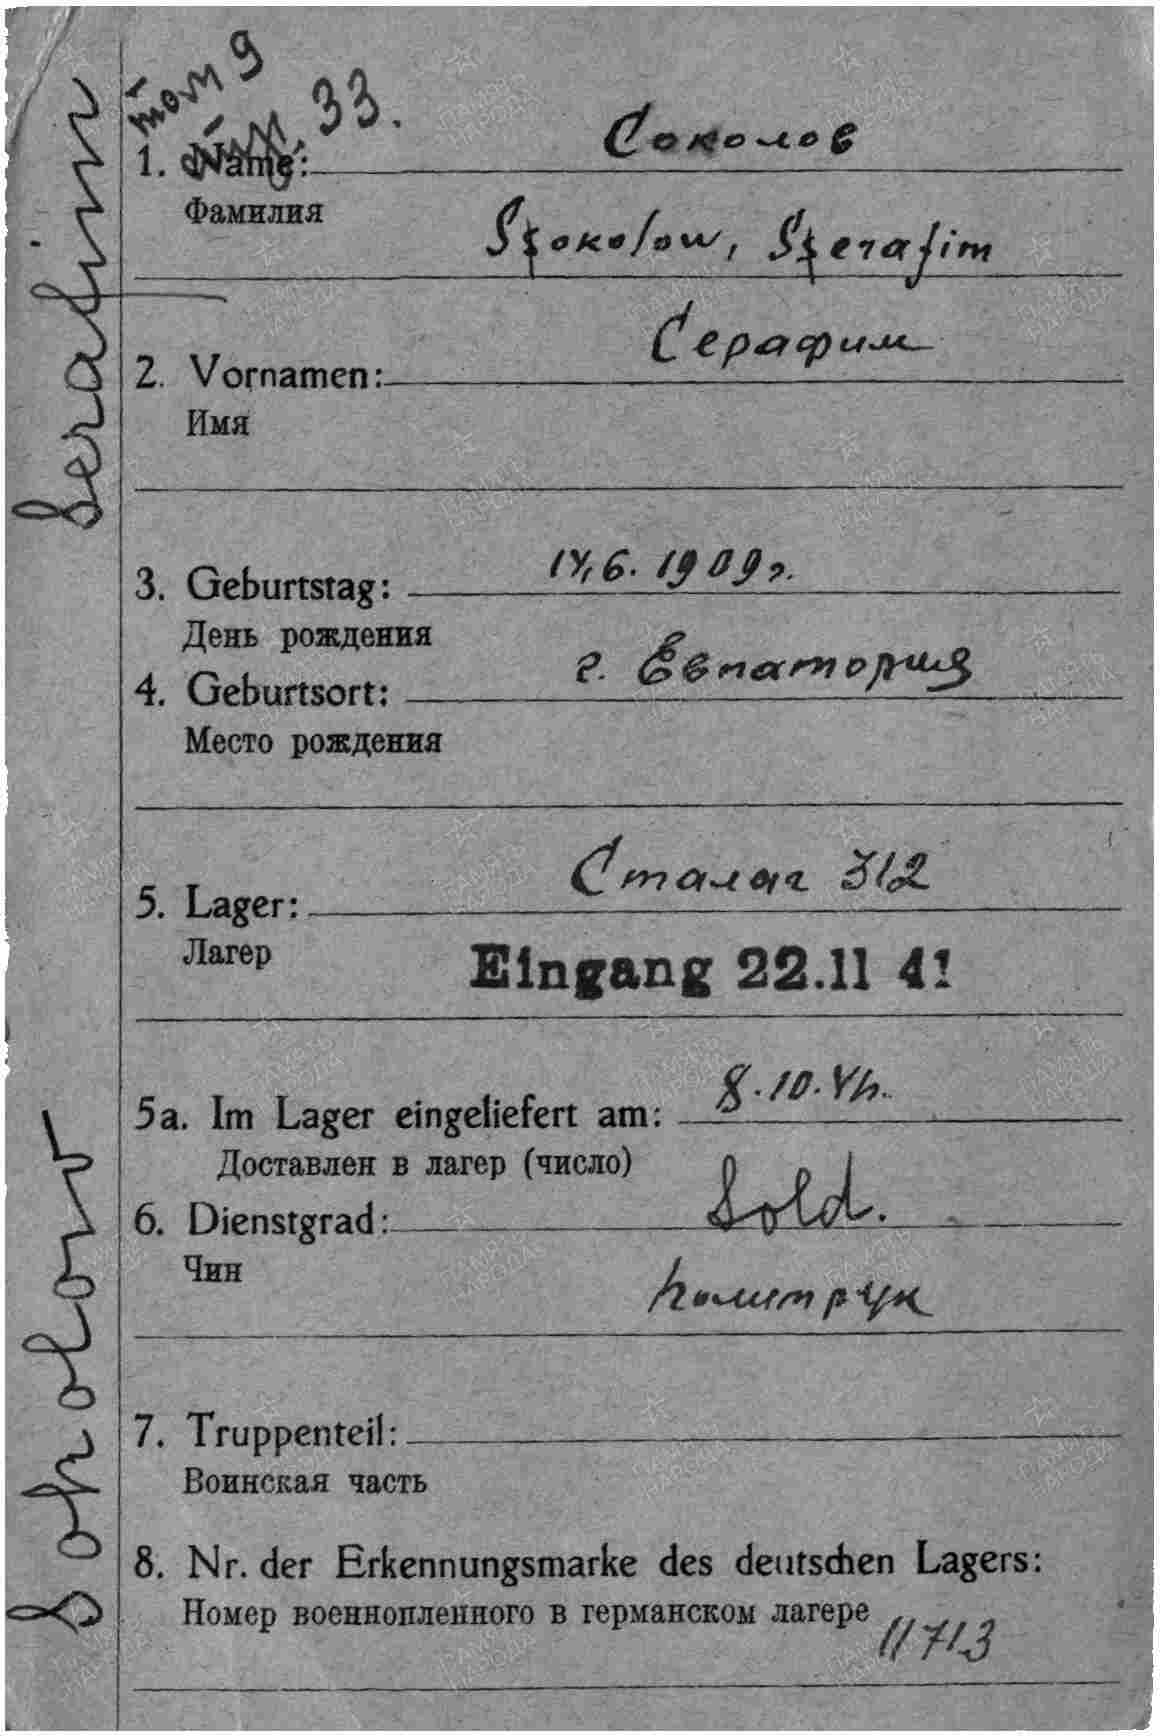 том 9
33.
1. Name: Соколов
Фамилия
Szokolow, Szerafim
2. Vornamen: Серафим
Имя
3. Geburtstag: 14.6.1909г.
День рождения
4. Geburtsort: г. Евпатория
Место рождения
5. Lager: Сталаг 312
Лагер
Eingang 22.11 41
5a. Im Lager eingeliefert am: 8.10.41.
Доставлен в лагер (число)
6. Dienstgrad: Sold.
Чин
Политрук
7. Truppenteil:
Воинская часть
8. Nr. der Erkennungsmarke des deutschen Lagers:
Номер военнопленного в германском лагере
11713
Sokolow Serafim